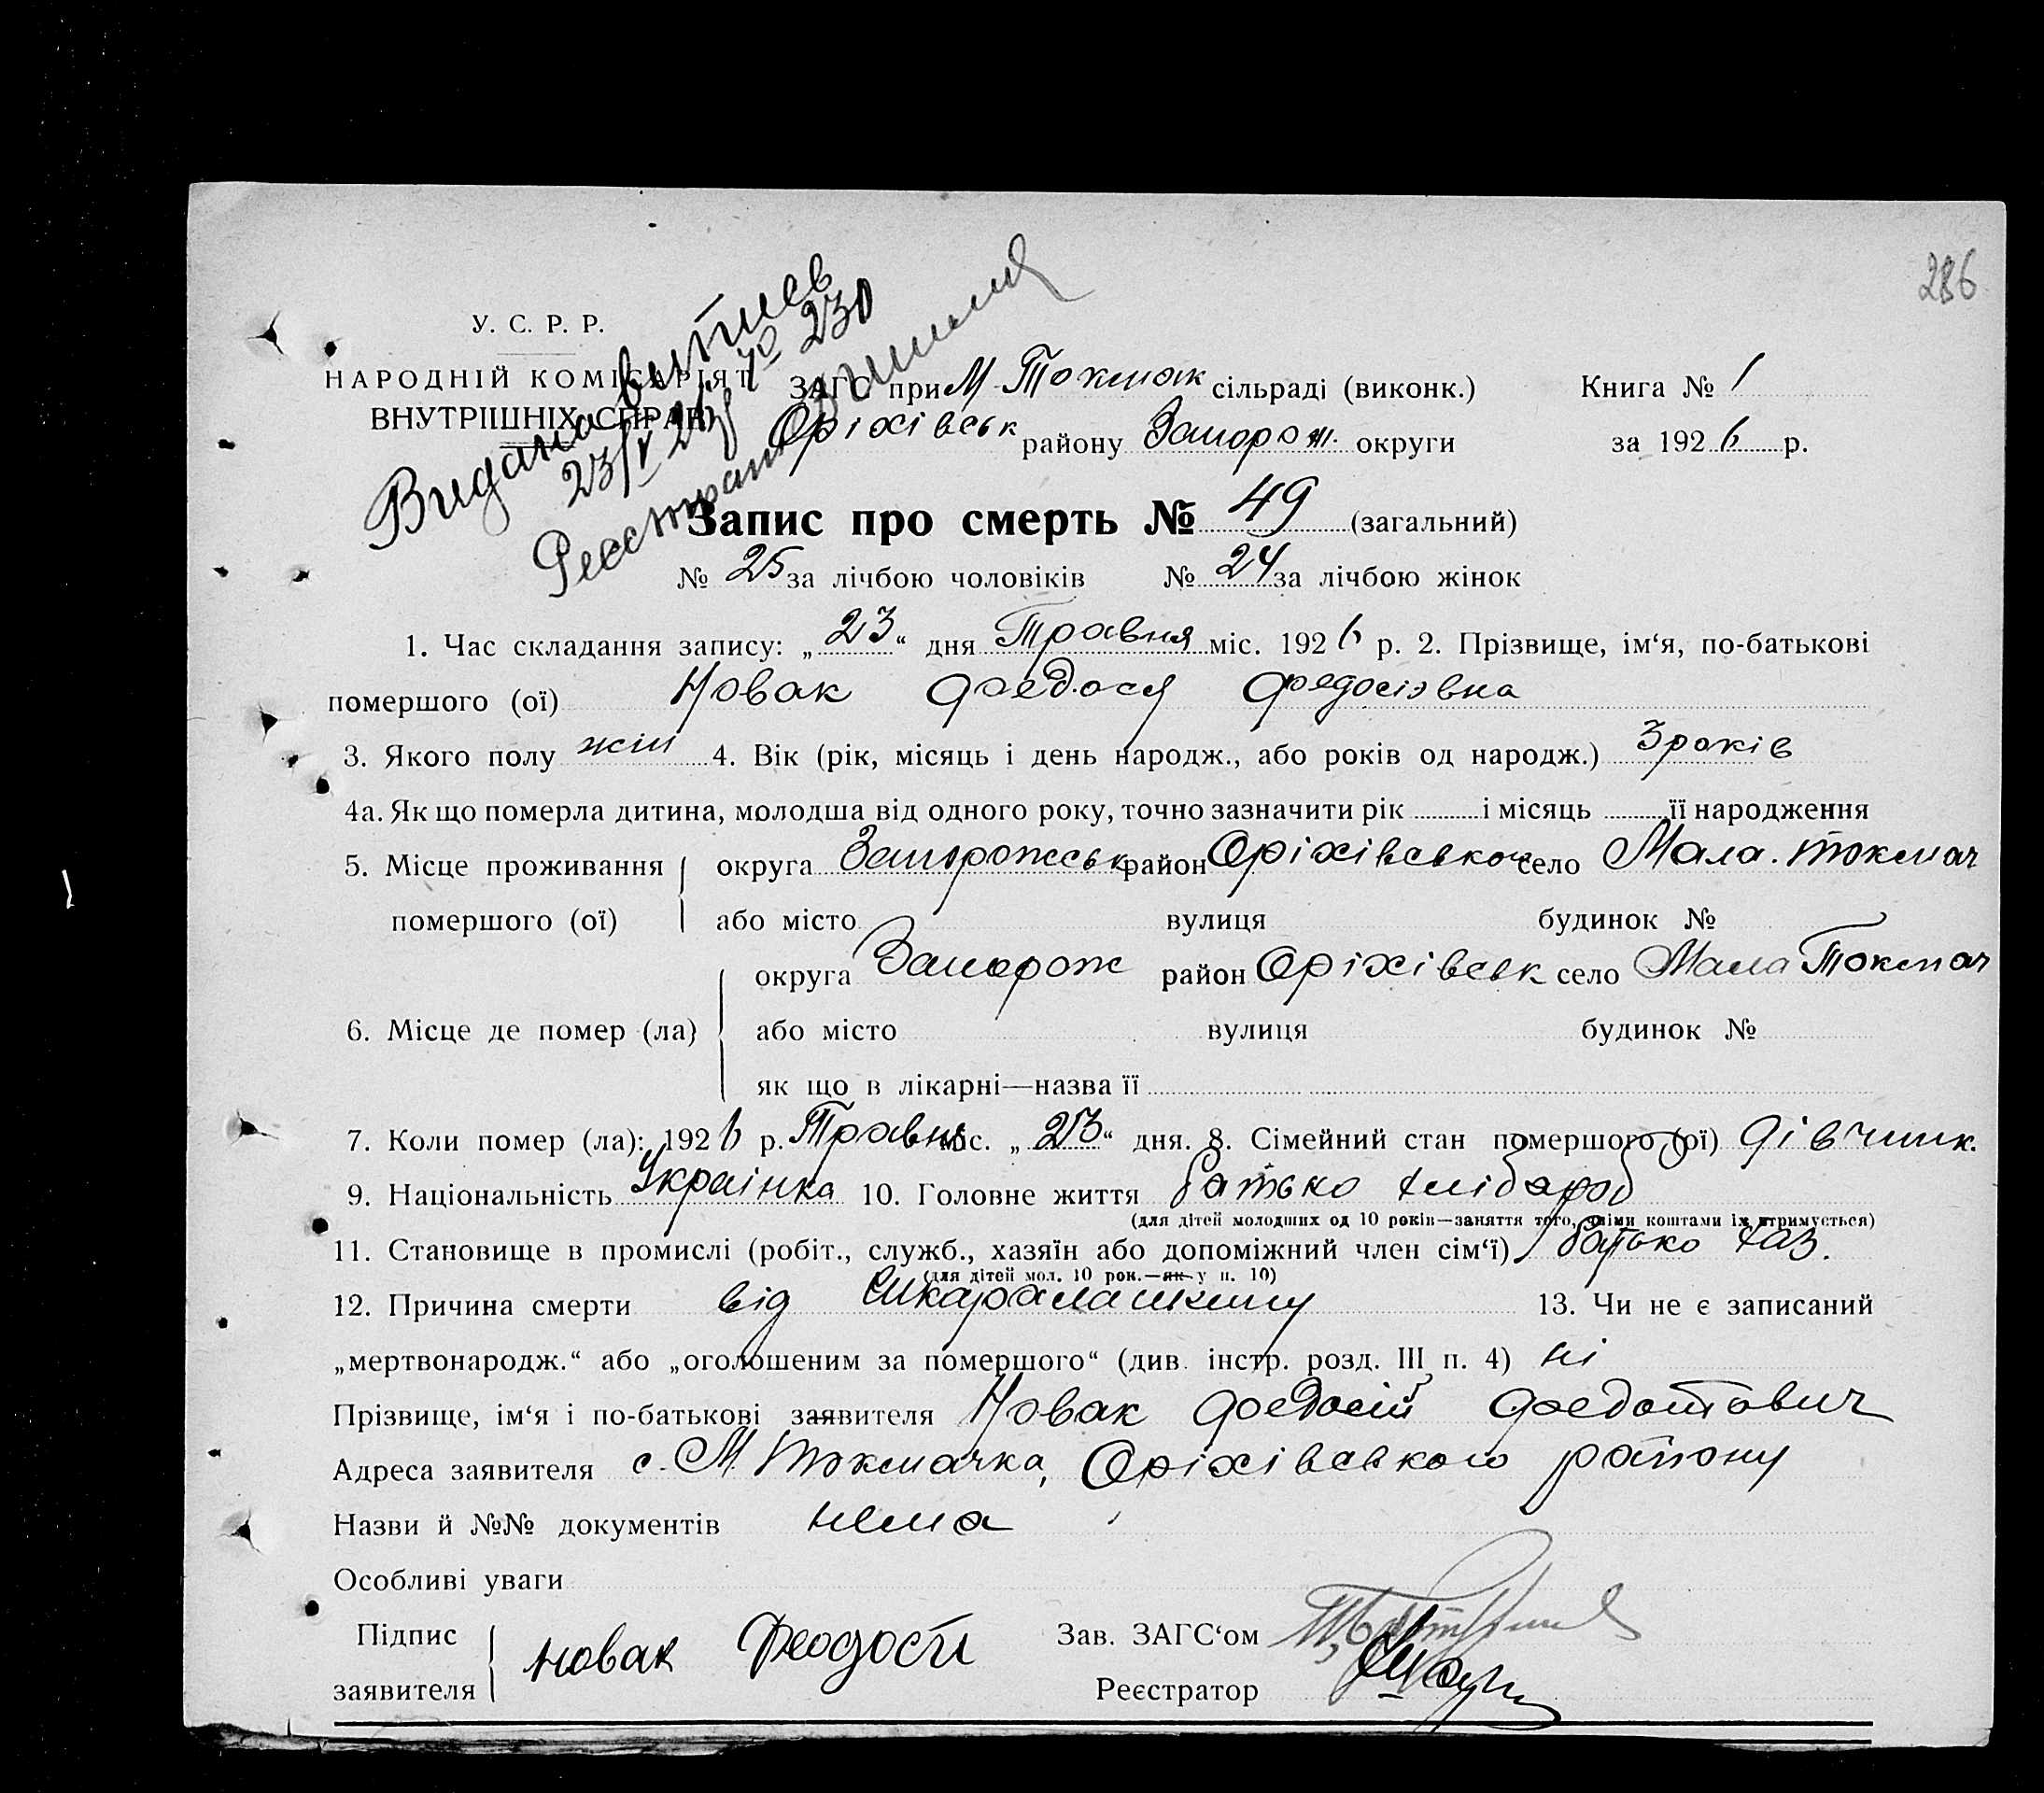 286
У. С. Р. Р.
НАРОДНІЙ КОМІСАРІЯТ
ВНУТРІШНІХ СПРАВ
Видана витяг
23/V 26 № 230
Реєстратор
ЗАГС при М-Токмак сільраді (виконк.) Книга № 1
Оріхівськ району Запорож. округи за 1926 р.
Запис про смерть № 49 (загальний)
№ 25 за лічбою чоловіків № 24 за лічбою жінок
1. Час складання запису: „23“ дня Травня міс. 1926 р. 2. Прізвище, ім‘я, по-батькові
помершого (ої) Новак Федося Федосієвна
3. Якого полу жін 4. Вік (рік, місяць і день народж., або років од народж.) 3 років
4а. Як що померла дитина, молодша від одного року, точно зазначити рік і місяць її народження
5. Місце проживання округа Запорожськ район Оріхівської село Мала. токмач
помершого (ої) або місто вулиця будинок №
округа Запорож район Оріхівськ село Мала Токмач
6. Місце де помер (ла) або місто вулиця будинок №
як що в лікарні—назва її
7. Коли помер (ла): 1926 р. Травня міс. „23“ дня. 8. Сімейний стан помершого (ої) дівчинк.
9. Національність Українка 10. Головне життя батько хлібороб
(для дітей молодших од 10 років—заняття того, чиїми коштами їх утримується)
11. Становище в промислі (робіт., служб., хазяїн або допоміжний член сім‘ї) батько хаз.
(для дітей мол. 10 рок.—як у п. 10)
12. Причина смерти від шкарлатини 13. Чи не є записаний
„мертвонародж.“ або „оголошеним за помершого“ (див. інстр. розд. III п. 4) ні
Прізвище, ім‘я і по-батькові заявителя Новак Федосій Федотович
Адреса заявителя с. М Токмачка, Оріхівського району
Назви й №№ документів нема
Особливі уваги
Підпис новак Феодоси Зав. ЗАГС‘ом
заявителя Реєстратор